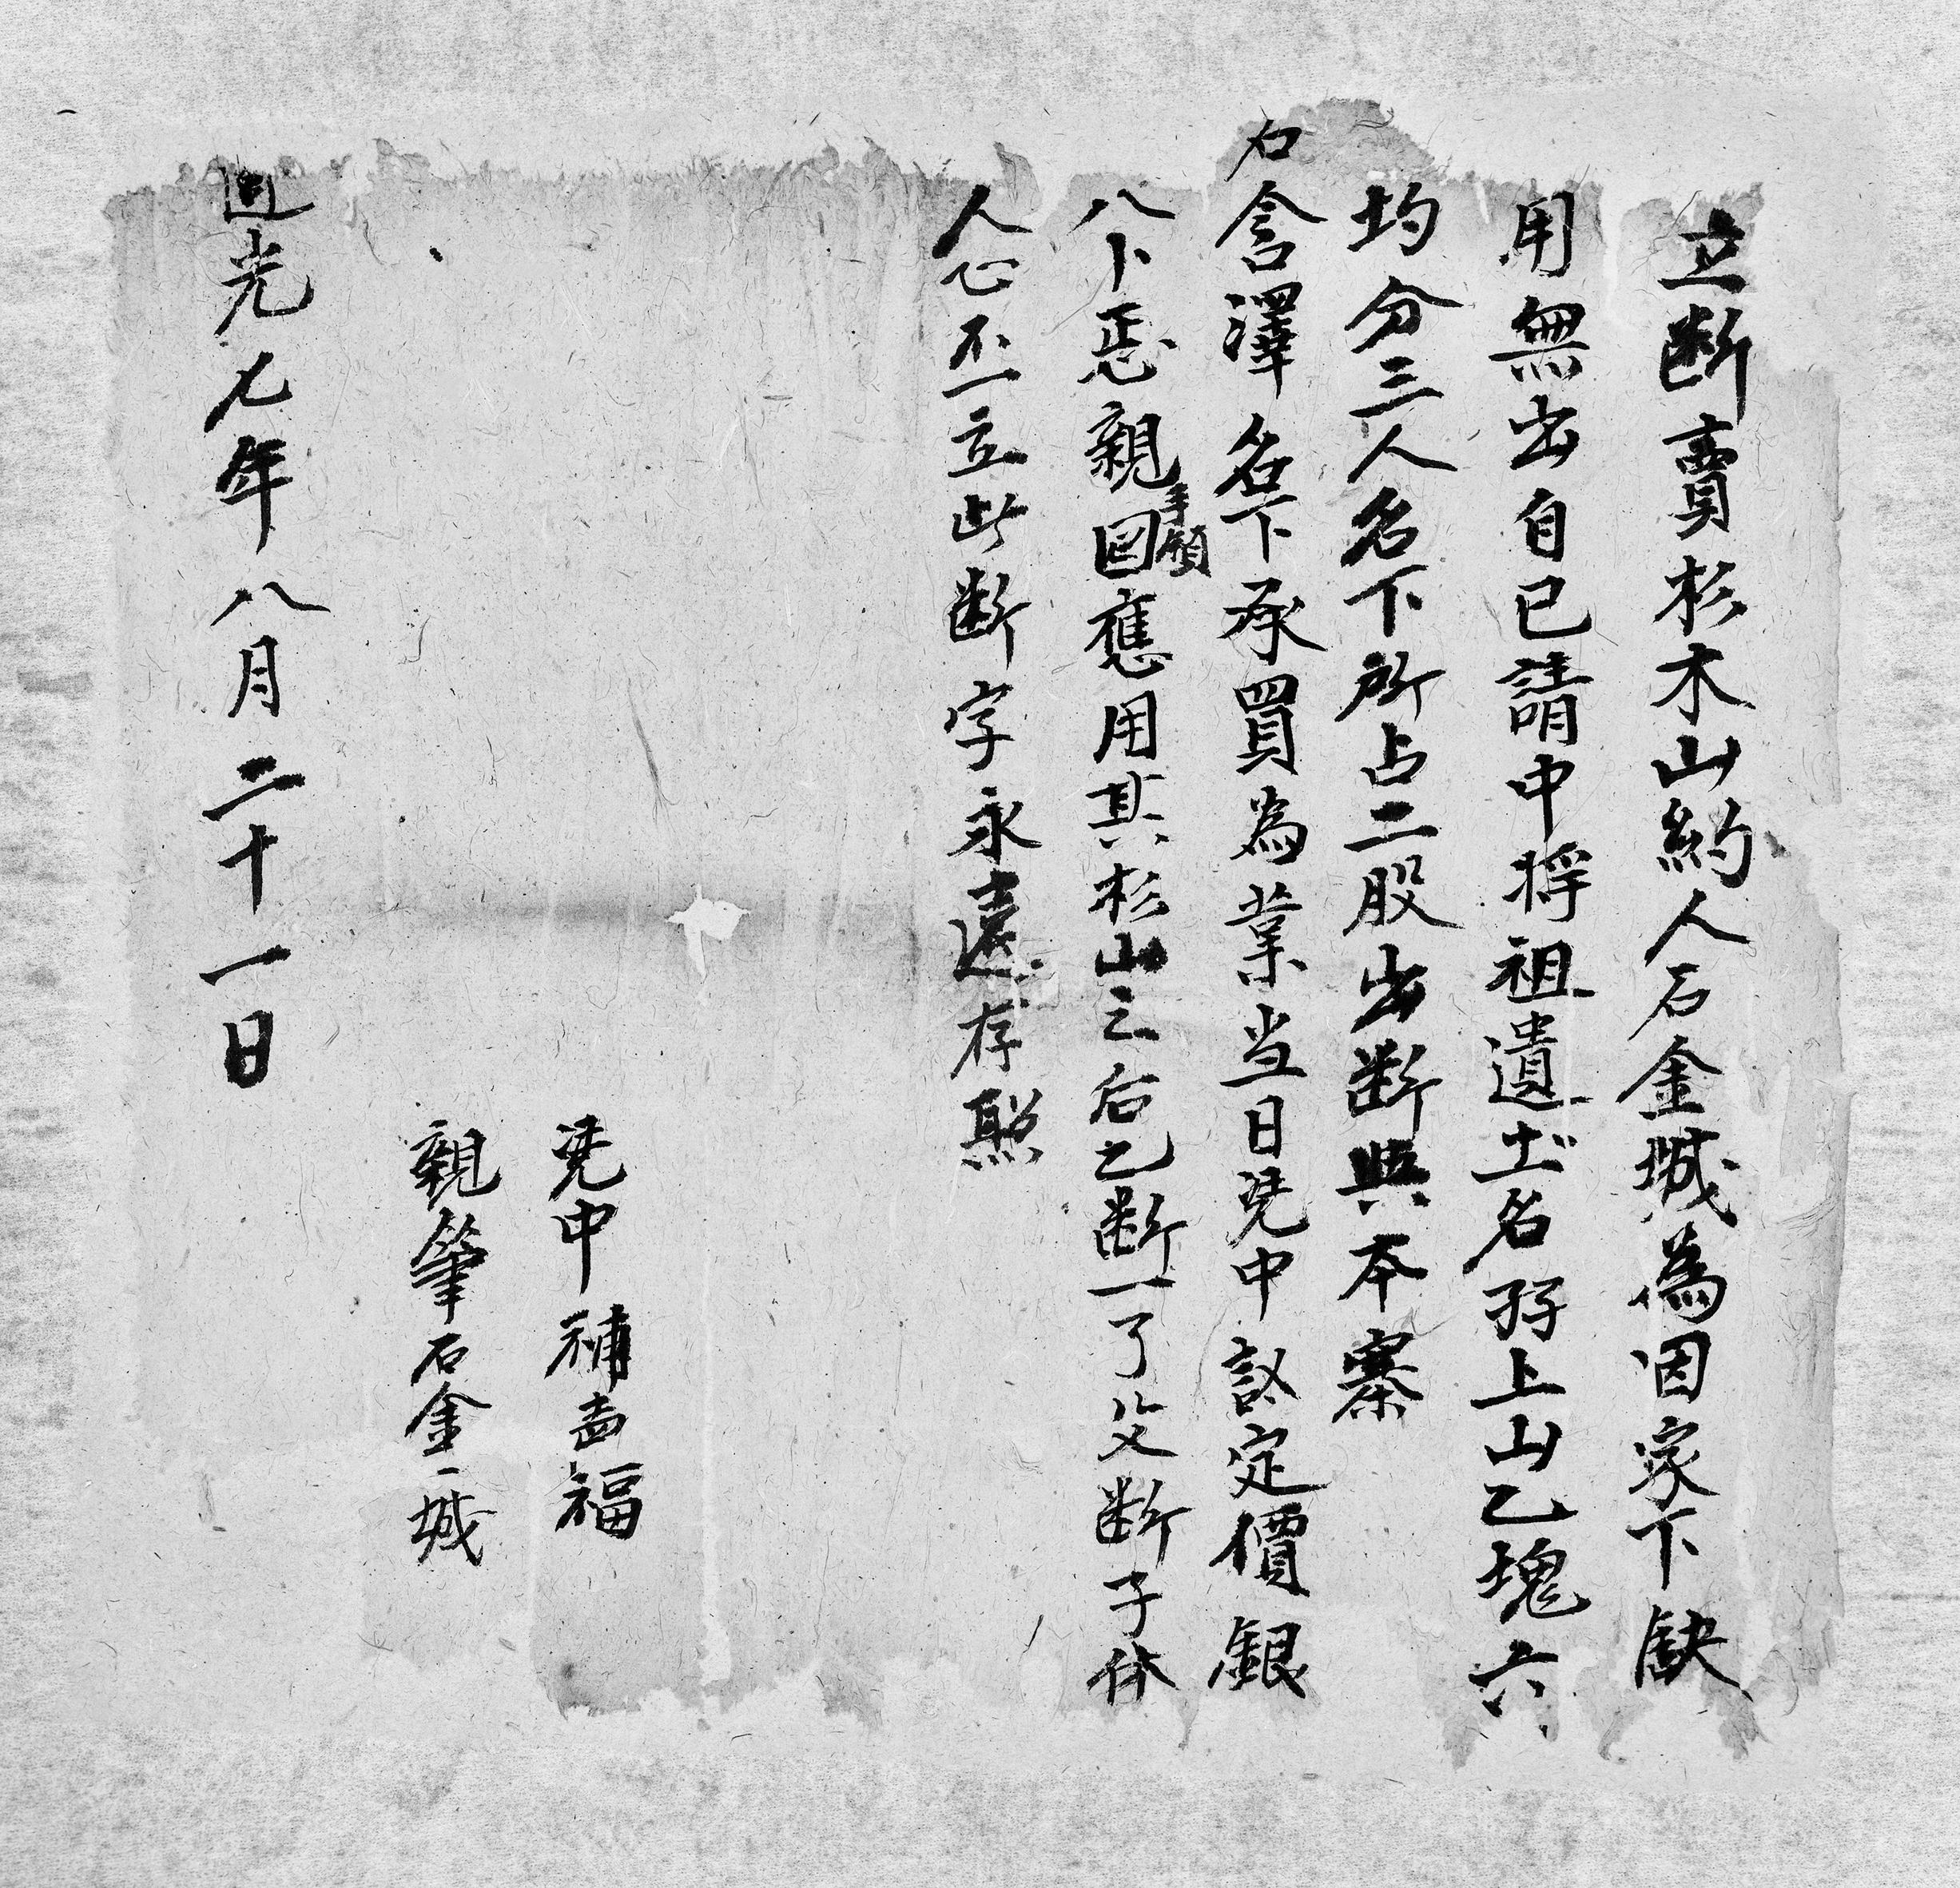 立断賣杉木山約人石金城為因家下缺
用無出自已請中將祖遺土名孖上山乙塊六
均分三人名下所占二股出断與本寨
石含澤名下承買為業当日凴中議定價銀
八卜恁親手領囬應用其杉山之后乙断一了父断子休
人心不一立此断字永遠存照
凴中補吉福
親筆石金城
道光九年八月二十一日